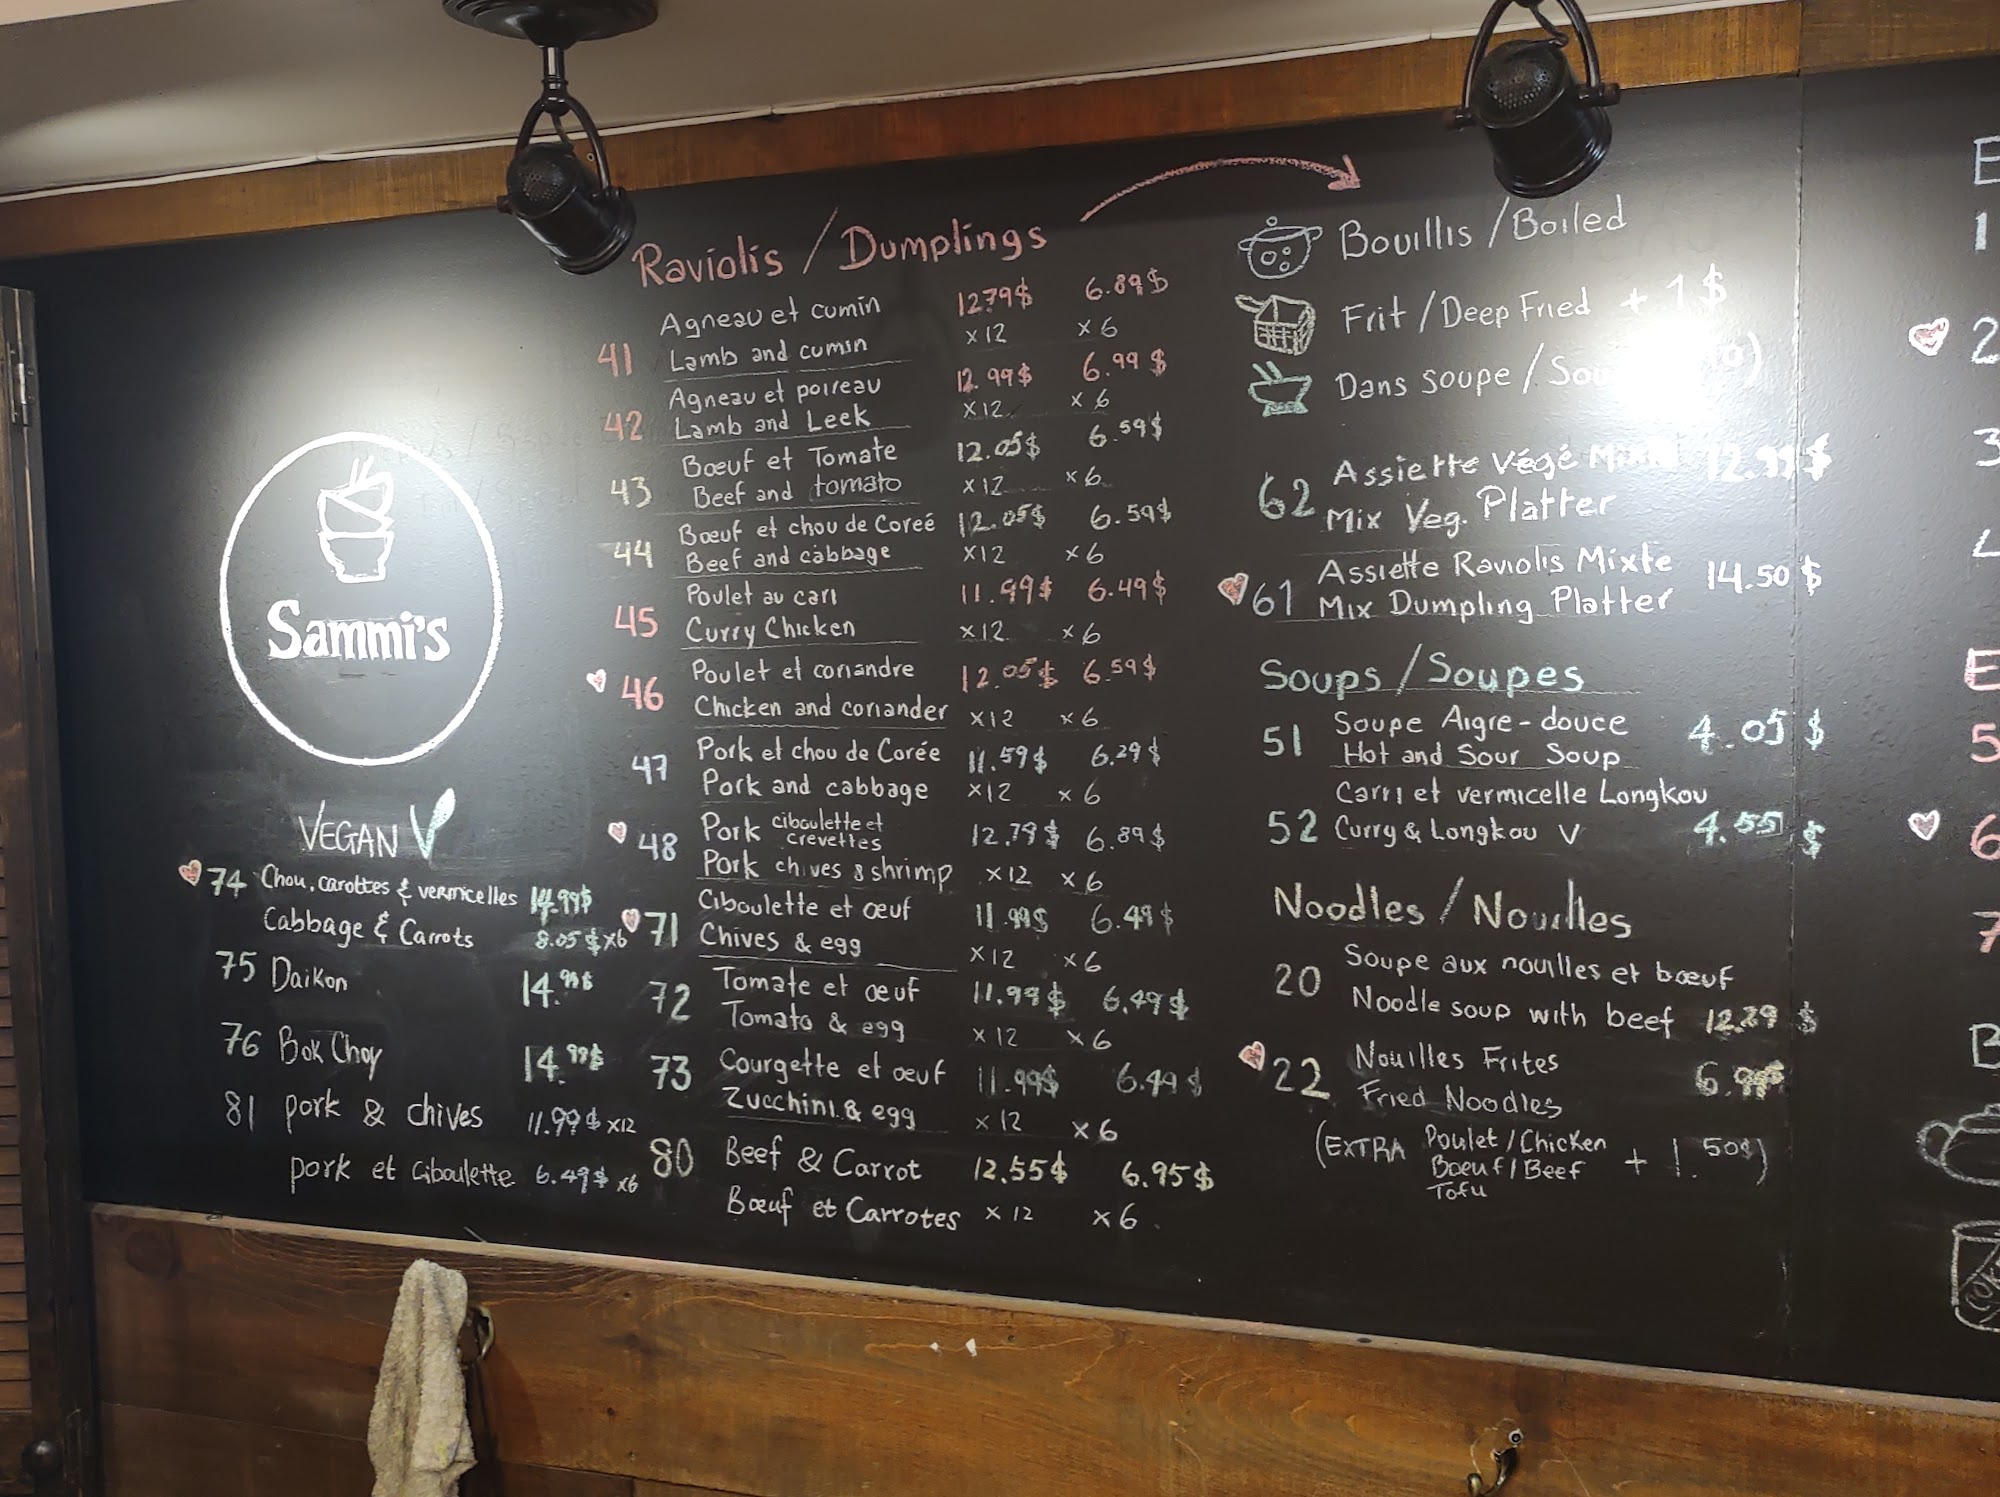 Sammi's
VEGAN V
74 Chou, carottes & vermicelles 14.99$
Cabbage & Carrots 8.05$ x6
75 Daikon 14.99$
76 Bok Choy 14.99$
81 pork & chives 11.99$ x12
pork et ciboulette 6.49$ x6
Raviolis / Dumplings
Agneau et cumin 12.79$ 6.89$
41 Lamb and cumin x12 x6
Agneau et poireau 12.99$ 6.99$
42 Lamb and Leek x12 x6
Bœuf et Tomate 12.05$ 6.59$
43 Beef and tomato x12 x6
Bœuf et chou de Coreé 12.05$ 6.59$
44 Beef and cabbage x12 x6
Poulet au cari 11.99$ 6.49$
45 Curry Chicken x12 x6
Poulet et coriandre 12.05$ 6.59$
46 Chicken and coriander x12 x6
Pork et chou de Corée 11.59$ 6.29$
47 Pork and cabbage x12 x6
Pork ciboulette et crevettes 12.79$ 6.89$
48 Pork chives & shrimp x12 x6
Ciboulette et œuf 11.99$ 6.49$
71 Chives & egg x12 x6
Tomate et œuf 11.99$ 6.49$
72 Tomato & egg x12 x6
73 Courgette et œuf 11.99$ 6.49$
Zucchini & egg x12 x6
80 Beef & Carrot 12.55$ 6.95$
Bœuf et Carrotes x12 x6
Bouillis / Boiled
Frit / Deep Fried + 1$
Dans soupe /
62 Assiette Végé Mixte 12.99$
Mix Veg. Platter
Assiette Raviolis Mixte 14.50$
61 Mix Dumpling Platter
Soups / Soupes
51 Soupe Aigre-douce 4.05$
Hot and Sour Soup
Carri et vermicelle Longkou
52 Curry & Longkou V 4.55$
Noodles / Nouilles
Soupe aux nouilles et bœuf
20 Noodle soup with beef 12.29$
22 Nouilles Frites 6.99$
Fried Noodles
(EXTRA Poulet/Chicken
Boeuf/Beef + 1.50$)
Tofu
E
1
2
3
E
5
6
7
B